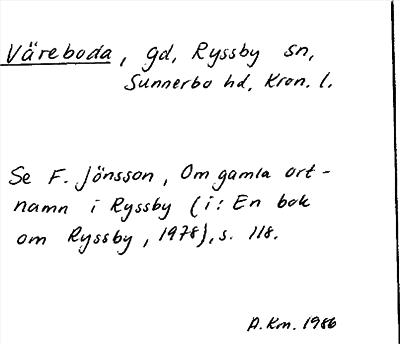 Väreboda, gd, Ryssby sn,
Sunnerbo hd, Kron. l.
Se F. Jönsson, Om gamla ort-
namn i Ryssby (i: En bok
om Ryssby, 1978), s. 118.
A. Km. 1986